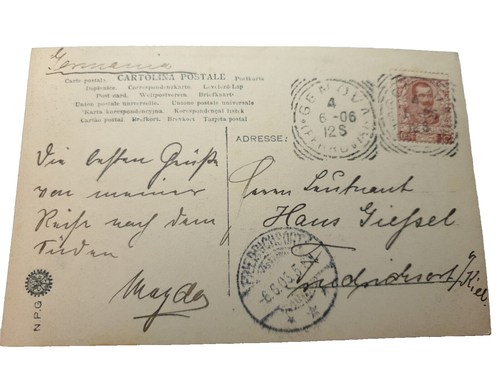 Germania
Carte postale. CARTOLINA POSTALE Postkarte
Dopisnice. Correspondenzkarte. Levelező-Lap
Post card. Weltpostverein. Briefkaart.
Union postale universelle. Unione postale universale
Korespondenční lístek
Cartão postal. Brefkort. Brevkort. Tarjeta postal
GENOVA
4
6-06
12S
ADRESSE:
Die besten Grüße
von meiner
Reise nach dem
Süden
Magda
Herrn Leutnant
Hans Gießel
Friedrichsort b/ Kiel.
FRIEDRICHSORT
6.6.06
N.P.G.